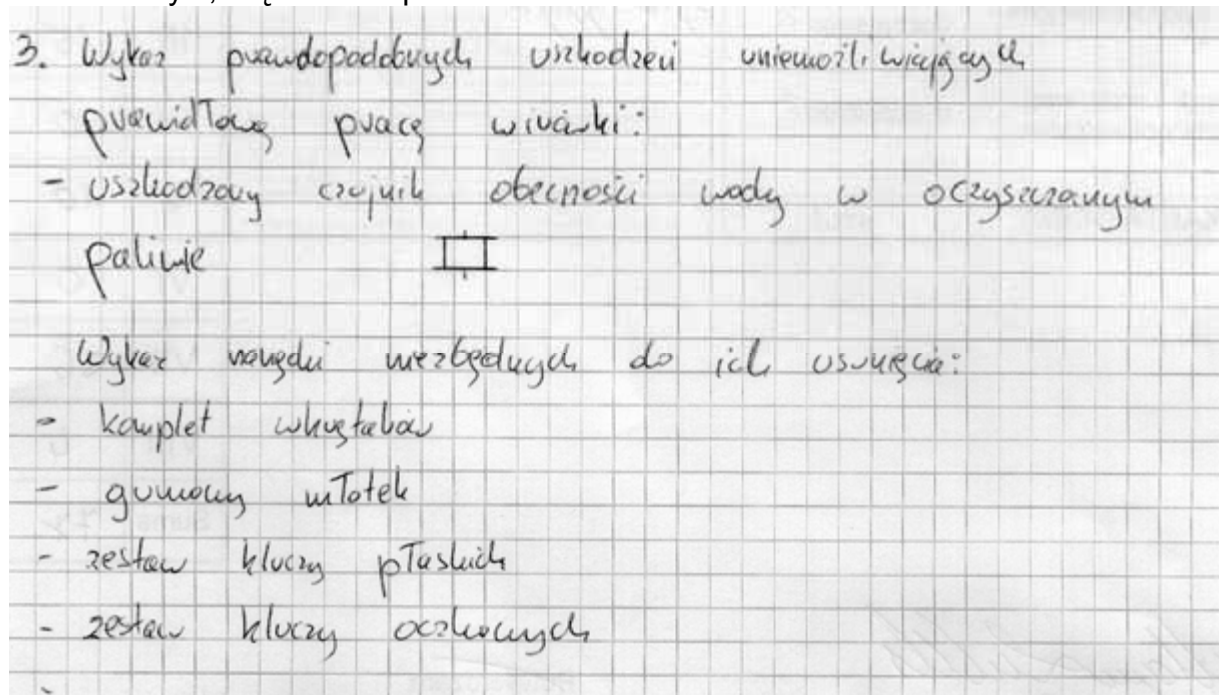 3. Wykaz prawdopodobnych uszkodzeń uniemożliwiających
prawidłową pracę wirówki:
- uszkodzony czujnik obecności wody w oczyszczanym
paliwie
Wykaz narzędzi niezbędnych do ich usunięcia:
- komplet wkrętaków
- gumowy młotek
- zestaw kluczy płaskich
- zestaw kluczy oczkowych
-